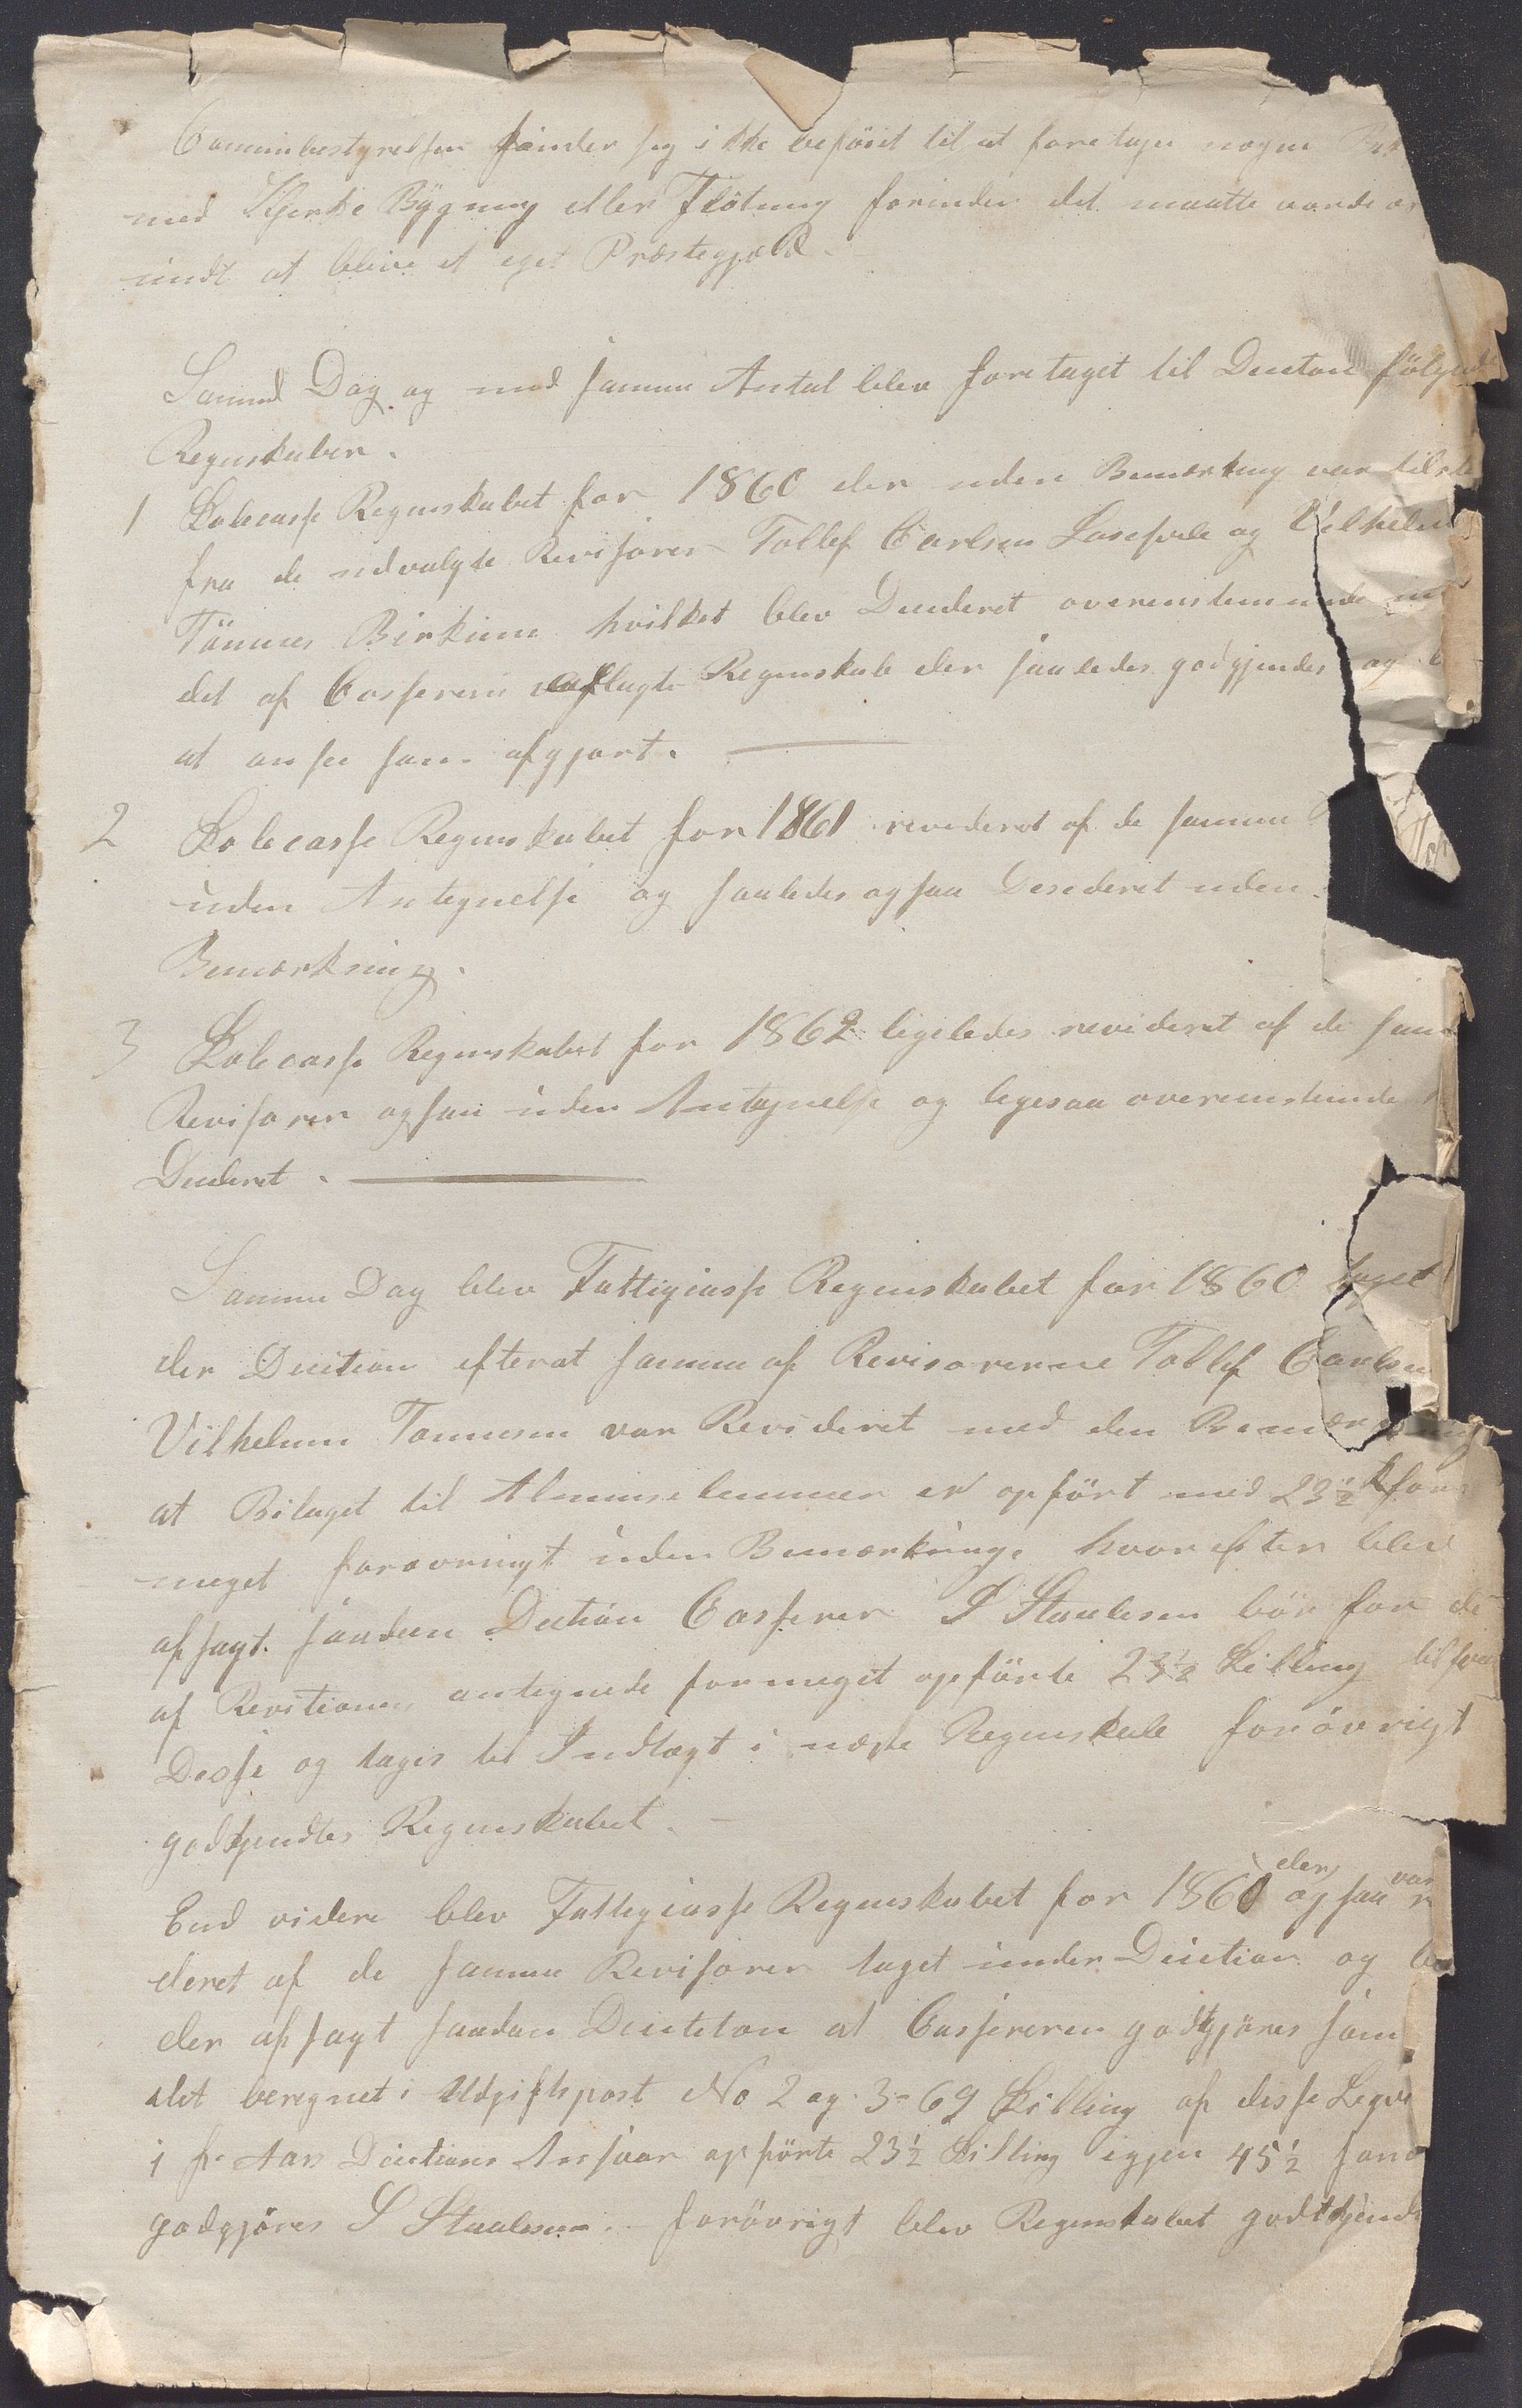 Comunbestyrelsen finder sig ikke beföiet til at foretage nogen
med Kjerke Bygning eller Flötning forinden det maatte vorde
indt at blive et eget Præstegjæld.
Samme Dag og med samme Antal blev foretaget til Decition fölgende
Regnskaber.
1 Skolecasse Regnskabet for 1860 der uden Bemærkning var
fra de udvalgte Revisorer Tollef Carlsen og Vilhelm
Tönnes Birkim hvilket blev Decideret overensstemmende
det af Casseren aflagte Regnskab der saaledes godgjendes og
at ansee som afgjort.
2 Skolecasse Regnskabet for 1861 revideret af de samme
uden Antegnelse og saaledes ogsaa Desideret uden
Bemærkning.
3 Skolecasse Regnskabet for 1862 ligeledes revideret af de
Revisorer ogsaa uden Antegnelse og ligesaa overensstemde
Decideret.
Samme Dag blev Fattigcasse Regnskabet for 1860 taget
der Decition efterat samme af Revisorerne Tollef Carlsen
Vilhelm Tönnesen var Revideret med den Bemærkning
at Bilaget til Almisselemmer er opfört med 23½ for
meget forövrigt uden Bemærkning. hvorefter blev
afsagt saadan Decition Casserer S Staalesen bör for de
af Revitionen antegnede formeget opförte 23½ Skilling
Desse og tages til Indtægt i næste Regnskab forövrigt
godkjendtes Regnskabet.
End videre blev Fattigcasse Regnskabet for 1861 der ogsaa var
deret af de samme Revisorer taget under Decition og
der afsagt saadan Decition at Cassereren godtgjöres som
det beregnet i Udgiftspost No 2 og 3 = 69 Skilling af disse
i f. Aars Decitions Ansvar opförte 23½ Skilling igjen 45½
godgjöres S Staalesen. forövrigt blev Regnskabet